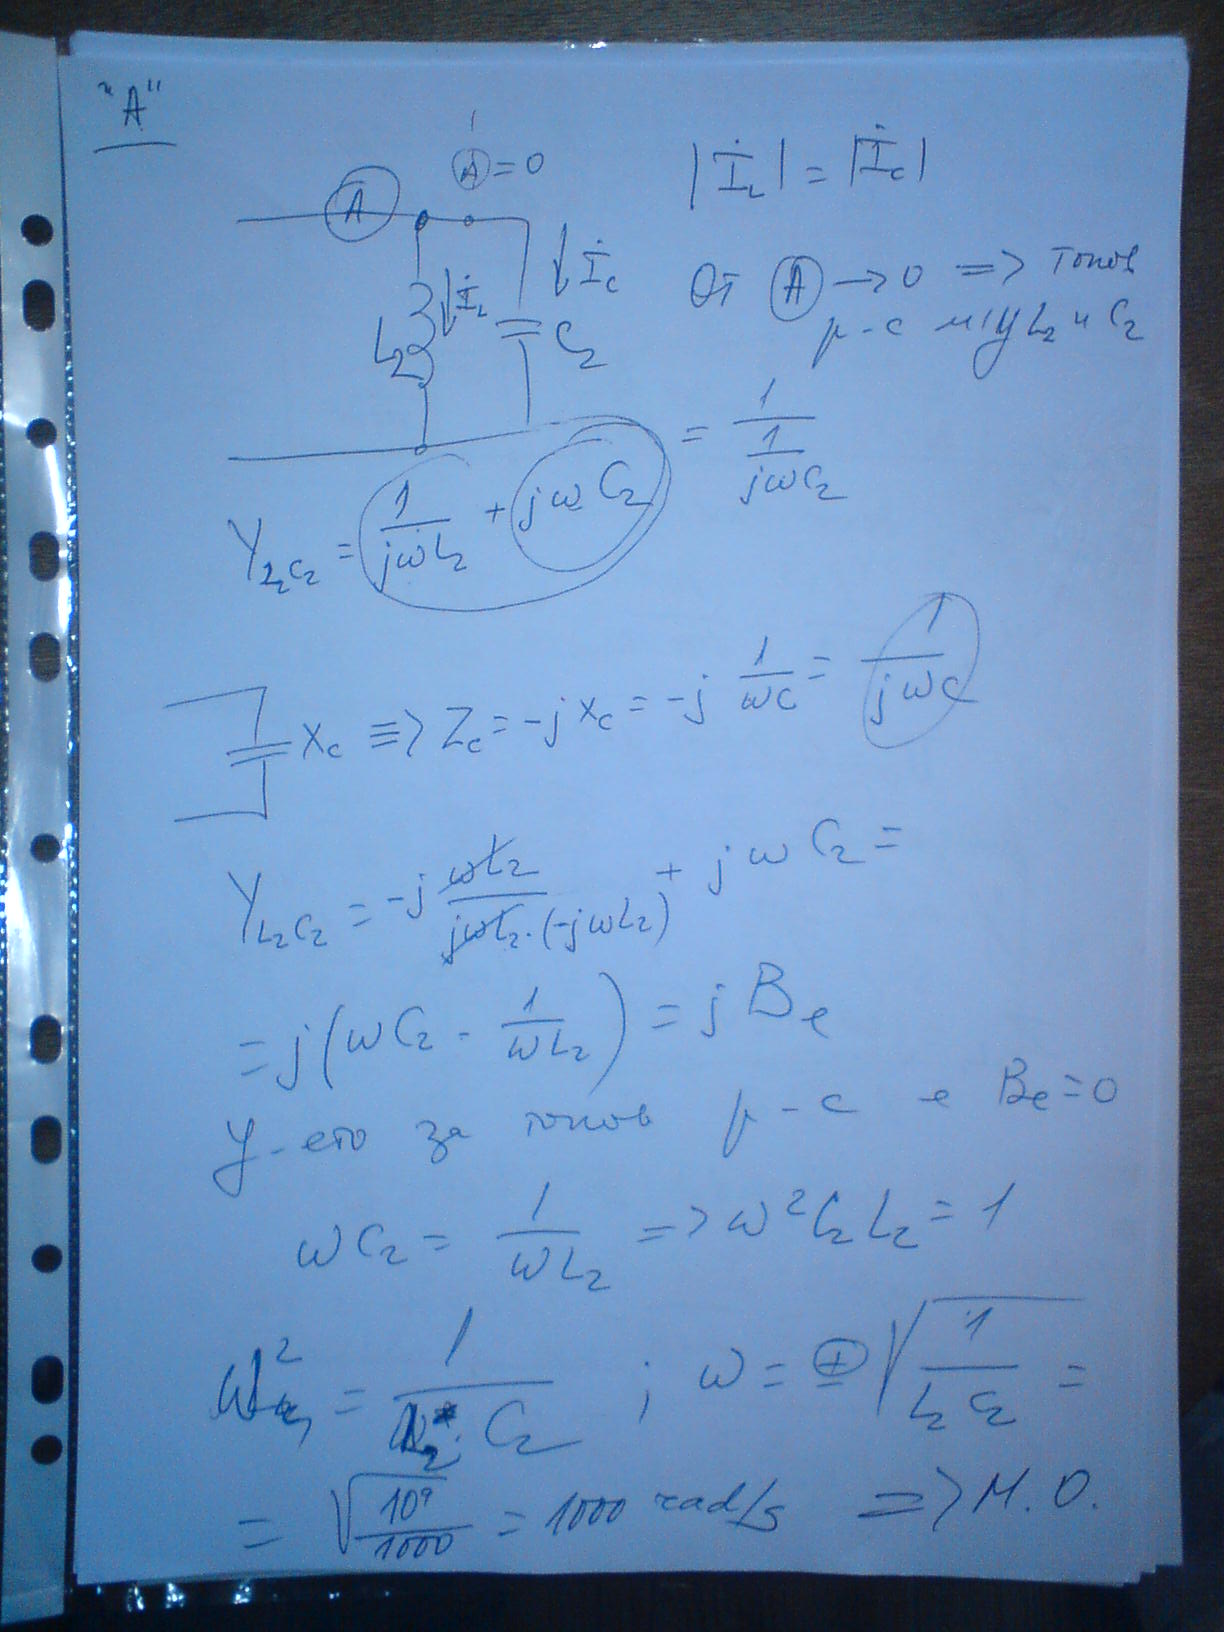 "A"
A
A = 0
|İ_L| = |İ_c|
İ_L
İ_c
L₂
C₂
От A → 0 => токов
р-с м/у L₂ и C₂
Y_L₂C₂ = 1/(jωL₂) + jωC₂ = 1/(1/(jωC₂))
X_c ≡> Z_c = -jX_c = -j 1/(ωC) = 1/(jωC)
Y_L₂C₂ = -j ωL₂/(jωL₂·(-jωL₂)) + jωC₂ =
= j(ωC₂ - 1/(ωL₂)) = jB_e
У-ето за токов р-с е B_e = 0
ωC₂ = 1/(ωL₂) => ω²C₂L₂ = 1
; ω = ± √(1/(L₂C₂)) =
= √(10⁹/1000) = 1000 rad/s => М.О.